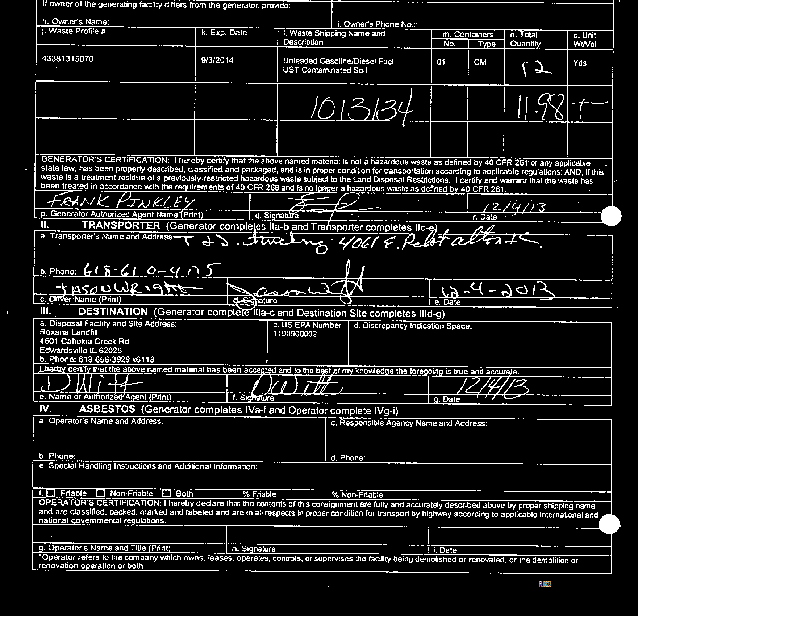 If owner of the generating facility differs from the generator, provide:
h. Owner's Name: i. Owner's Phone No.:
j. Waste Profile # k. Exp. Date l. Waste Shipping Name and Description m. Containers No. Type n. Total Quantity o. Unit Wt/Vol
9/3/2014 Unleaded Gasoline/Diesel Fuel UST Contaminated Soil 01 CM 12 Yds
1013134 11.98 T
GENERATOR'S CERTIFICATION: I hereby certify that the above named material is not a hazardous waste as defined by 40 CFR 261 or any applicable
state law, has been properly described, classified and packaged, and is in proper condition for transportation according to applicable regulations; AND, if this
waste is a treatment residue of a previously restricted hazardous waste subject to the Land Disposal Restrictions, I certify and warrant that the waste has
been treated in accordance with the requirements of 40 CFR 268 and is no longer a hazardous waste as defined by 40 CFR 261.
FRANK PINKLEY 12/4/13
p. Generator Authorized Agent Name (Print) q. Signature r. Date
II. TRANSPORTER (Generator completes IIa-b and Transporter completes IIc-e)
a. Transporter's Name and Address T & D trucking 4061 E.
b. Phone: 618-610-4175
JASON WRIGHT Jason 12-4-2013
c. Driver Name (Print) d. Signature e. Date
III. DESTINATION (Generator complete IIIa-c and Destination Site completes IIId-g)
a. Disposal Facility and Site Address: c. US EPA Number d. Discrepancy Indication Space:
Roxana Landfill
4601 Cahokia Creek Rd
Edwardsville IL 62025
b. Phone: 618-656-3929
I hereby certify that the above named material has been accepted and to the best of my knowledge the foregoing is true and accurate.
D Witt D Witt 12/4/13
e. Name of Authorized Agent (Print) f. Signature g. Date
IV. ASBESTOS (Generator completes IVa-f and Operator complete IVg-i)
a. Operator's Name and Address: c. Responsible Agency Name and Address:
b. Phone: d. Phone:
e. Special Handling Instructions and Additional Information:
f. Friable Non-Friable Both % Friable % Non-Friable
OPERATOR'S CERTIFICATION: I hereby declare that the contents of this consignment are fully and accurately described above by proper shipping name
and are classified, packed, marked and labeled and are in all respects in proper condition for transport by highway according to applicable international and
national governmental regulations.
g. Operator's Name and Title (Print) h. Signature i. Date
*Operator refers to the company which owns, leases, operates, controls, or supervises the facility being demolished or renovated, or the demolition or
renovation operation or both